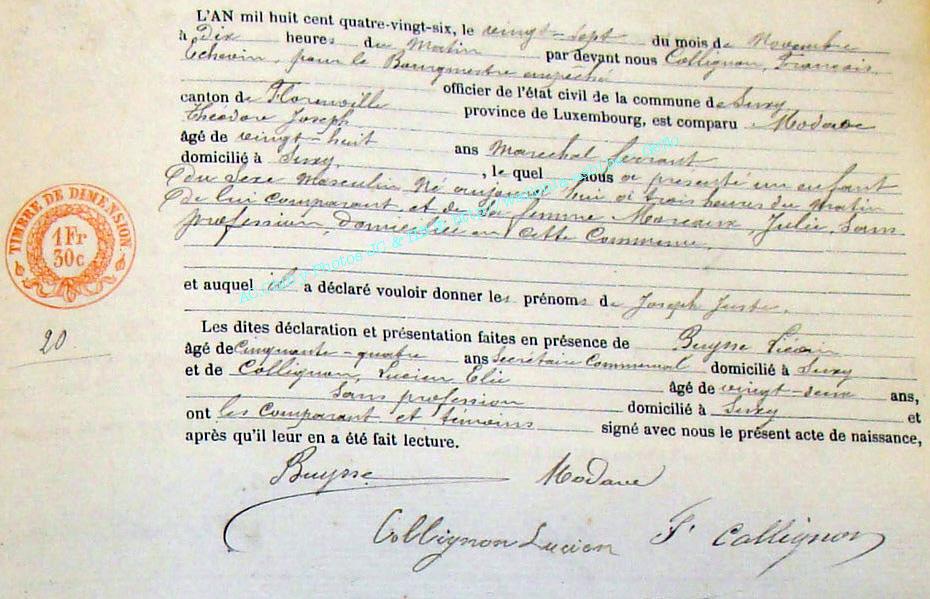 L'AN mil huit cent quatre-vingt-six, le vingt-sept du mois de Novembre
à Dix heures du Matin par devant nous Collignon, François
Echevin, pour le Bourgmestre empêché
officier de l'état civil de la commune de Suxy
canton de Florenville province de Luxembourg, est comparu Modave
Théodore Joseph
âgé de vingt-huit ans Maréchal ferrant
domicilié à Suxy, le quel nous a présenté un enfant
du sexe masculin né aujourd'hui à trois heures du matin
de lui comparant et de sa femme Marcaux, Julie, sans
profession, domiciliée en cette Commune,
et auquel il a déclaré vouloir donner les prénoms de Joseph Juste.
Les dites déclaration et présentation faites en présence de Buysse
âgé de Cinquante-quatre ans Secrétaire Communal domicilié à Suxy
et de Collignon, Lucien Elie âgé de vingt-deux ans,
Sans profession domicilié à Suxy et
ont les Comparant et témoins signé avec nous le présent acte de naissance,
après qu'il leur en a été fait lecture.
Buysse Modave
Collignon Lucien F. Collignon
TIMBRE DE DIMENSION
1 Fr
30 c
20